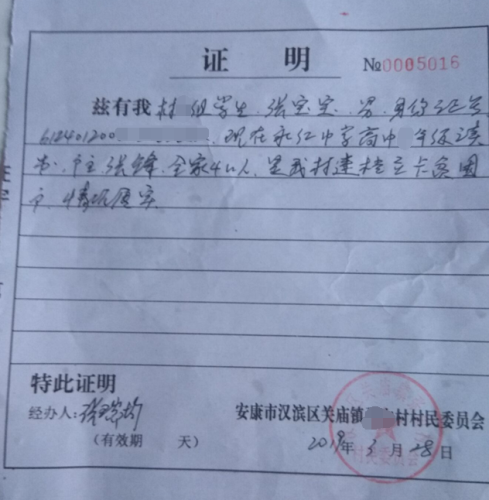 证 明
№0005016
兹有我村 组学生,张宝宝,男,身份证号
612401200 ,现在永红中学高中 年级读
书,户主张锋,全家4口人,是我村建档立卡贫困
户,情况属实
特此证明
经办人:
(有效期 天)
安康市汉滨区关庙镇 村村民委员会
2019年3月28日
村民委员会